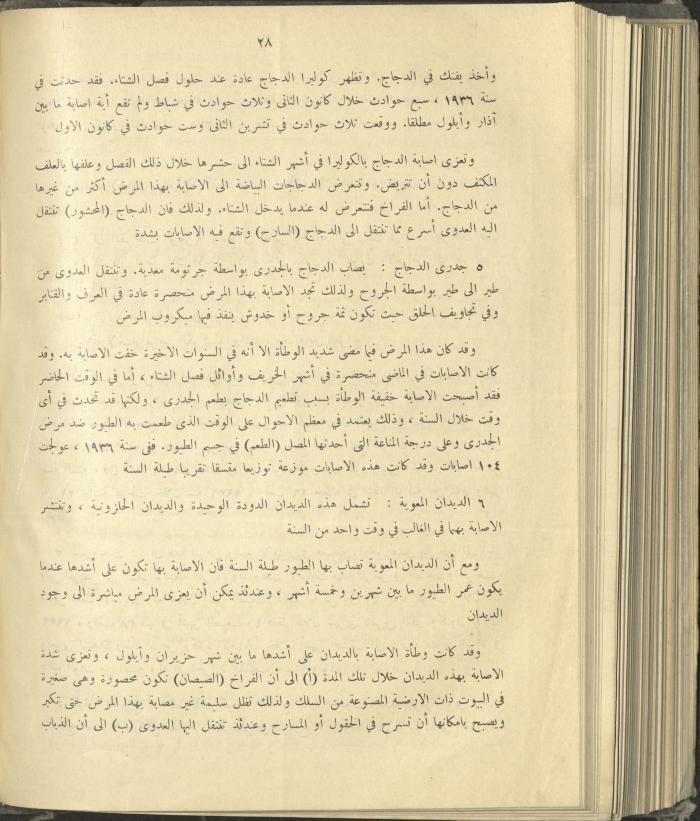 ٢٨
وأخذ يفتك في الدجاج. وتظهر كوليرا الدجاج عادة عند حلول فصل الشتاء. فقد حدثت في
سنة ١٩٣٦ ، سبع حوادث خلال كانون الثانى وثلاث حوادث في شباط ولم تقع أية اصابة ما بين
آذار وأيلول مطلقا. ووقعت ثلاث حوادث في تشرين الثانى وست حوادث في كانون الاول
وتعزى اصابة الدجاج بالكوليرا في أشهر الشتاء الى حشرها خلال ذلك الفصل وعلفها بالعلف
المكثف دون أن تتريض. وتتعرض الدجاجات البياضة الى الاصابة بهذا المرض أكثر من غيرها
من الدجاج. أما الفراخ فتتعرض له عندما يدخل الشتاء. ولذلك فان الدجاج (المحشور) تنتقل
اليه العدوى أسرع مما تنتقل الى الدجاج (السارح) وتقع فيه الاصابات بشدة
٥ جدرى الدجاج : يصاب الدجاج بالجدرى بواسطة جرثومة معدية. وتنتقل العدوى من
طير الى طير بواسطة الجروح ولذلك تجد الاصابة بهذا المرض منحصرة عادة في العرف والقنابر
وفي تجاويف الحلق حيث تكون ثمة جروح أو خدوش ينفذ فيها ميكروب المرض
وقد كان هذا المرض فيما مضى شديد الوطأة الا أنه في السنوات الاخيرة خفت الاصابة به. وقد
كانت الاصابات في الماضى منحصرة في أشهر الخريف وأوائل فصل الشتاء ، أما في الوقت الحاضر
فقد أصبحت الاصابة خفيفة الوطأة بسب تطعيم الدجاج بطعم الجدرى ، ولكنها قد تحدث في أى
وقت خلال السنة ، وذلك يعتمد في معظم الاحوال على الوقت الذى طعمت به الطيور ضد مرض
الجدرى وعلى درجة المناعة التى أحدثها المصل (الطعم) في جسم الطيور. ففى سنة ١٩٣٦ ، عولجت
١٠٤ اصابات وقد كانت هذه الاصابات موزعة توزيعا متسقا تقريبا طيلة السنة
٦ الديدان المعوية : تشمل هذه الديدان الدودة الوحيدة والديدان الحلزونية ، وتنتشر
الاصابة بهما في الغالب في وقت واحد من السنة
ومع أن الديدان المعوية تصاب بها الطيور طيلة السنة فان الاصابة بها تكون على أشدها عندما
يكون عمر الطيور ما بين شهرين وخمسة أشهر ، وعندئذ يمكن أن يعزى المرض مباشرة الى وجود
الديدان
وقد كانت وطأة الاصابة بالديدان على أشدها ما بين شهر حزيران وأيلول ، وتعزى شدة
الاصابة بهذه الديدان خلال تلك المدة (أ) الى أن الفراخ (الصيصان) تكون محصورة وهى صغيرة
في البيوت ذات الارضية المصنوعة من السلك ولذلك تظل سليمة غير مصابة بهذا المرض حتى تكبر
ويصبح بامكانها أن تسرح في الحقول أو المسارح وعندئذ تنتقل اليها العدوى (ب) الى أن الذباب